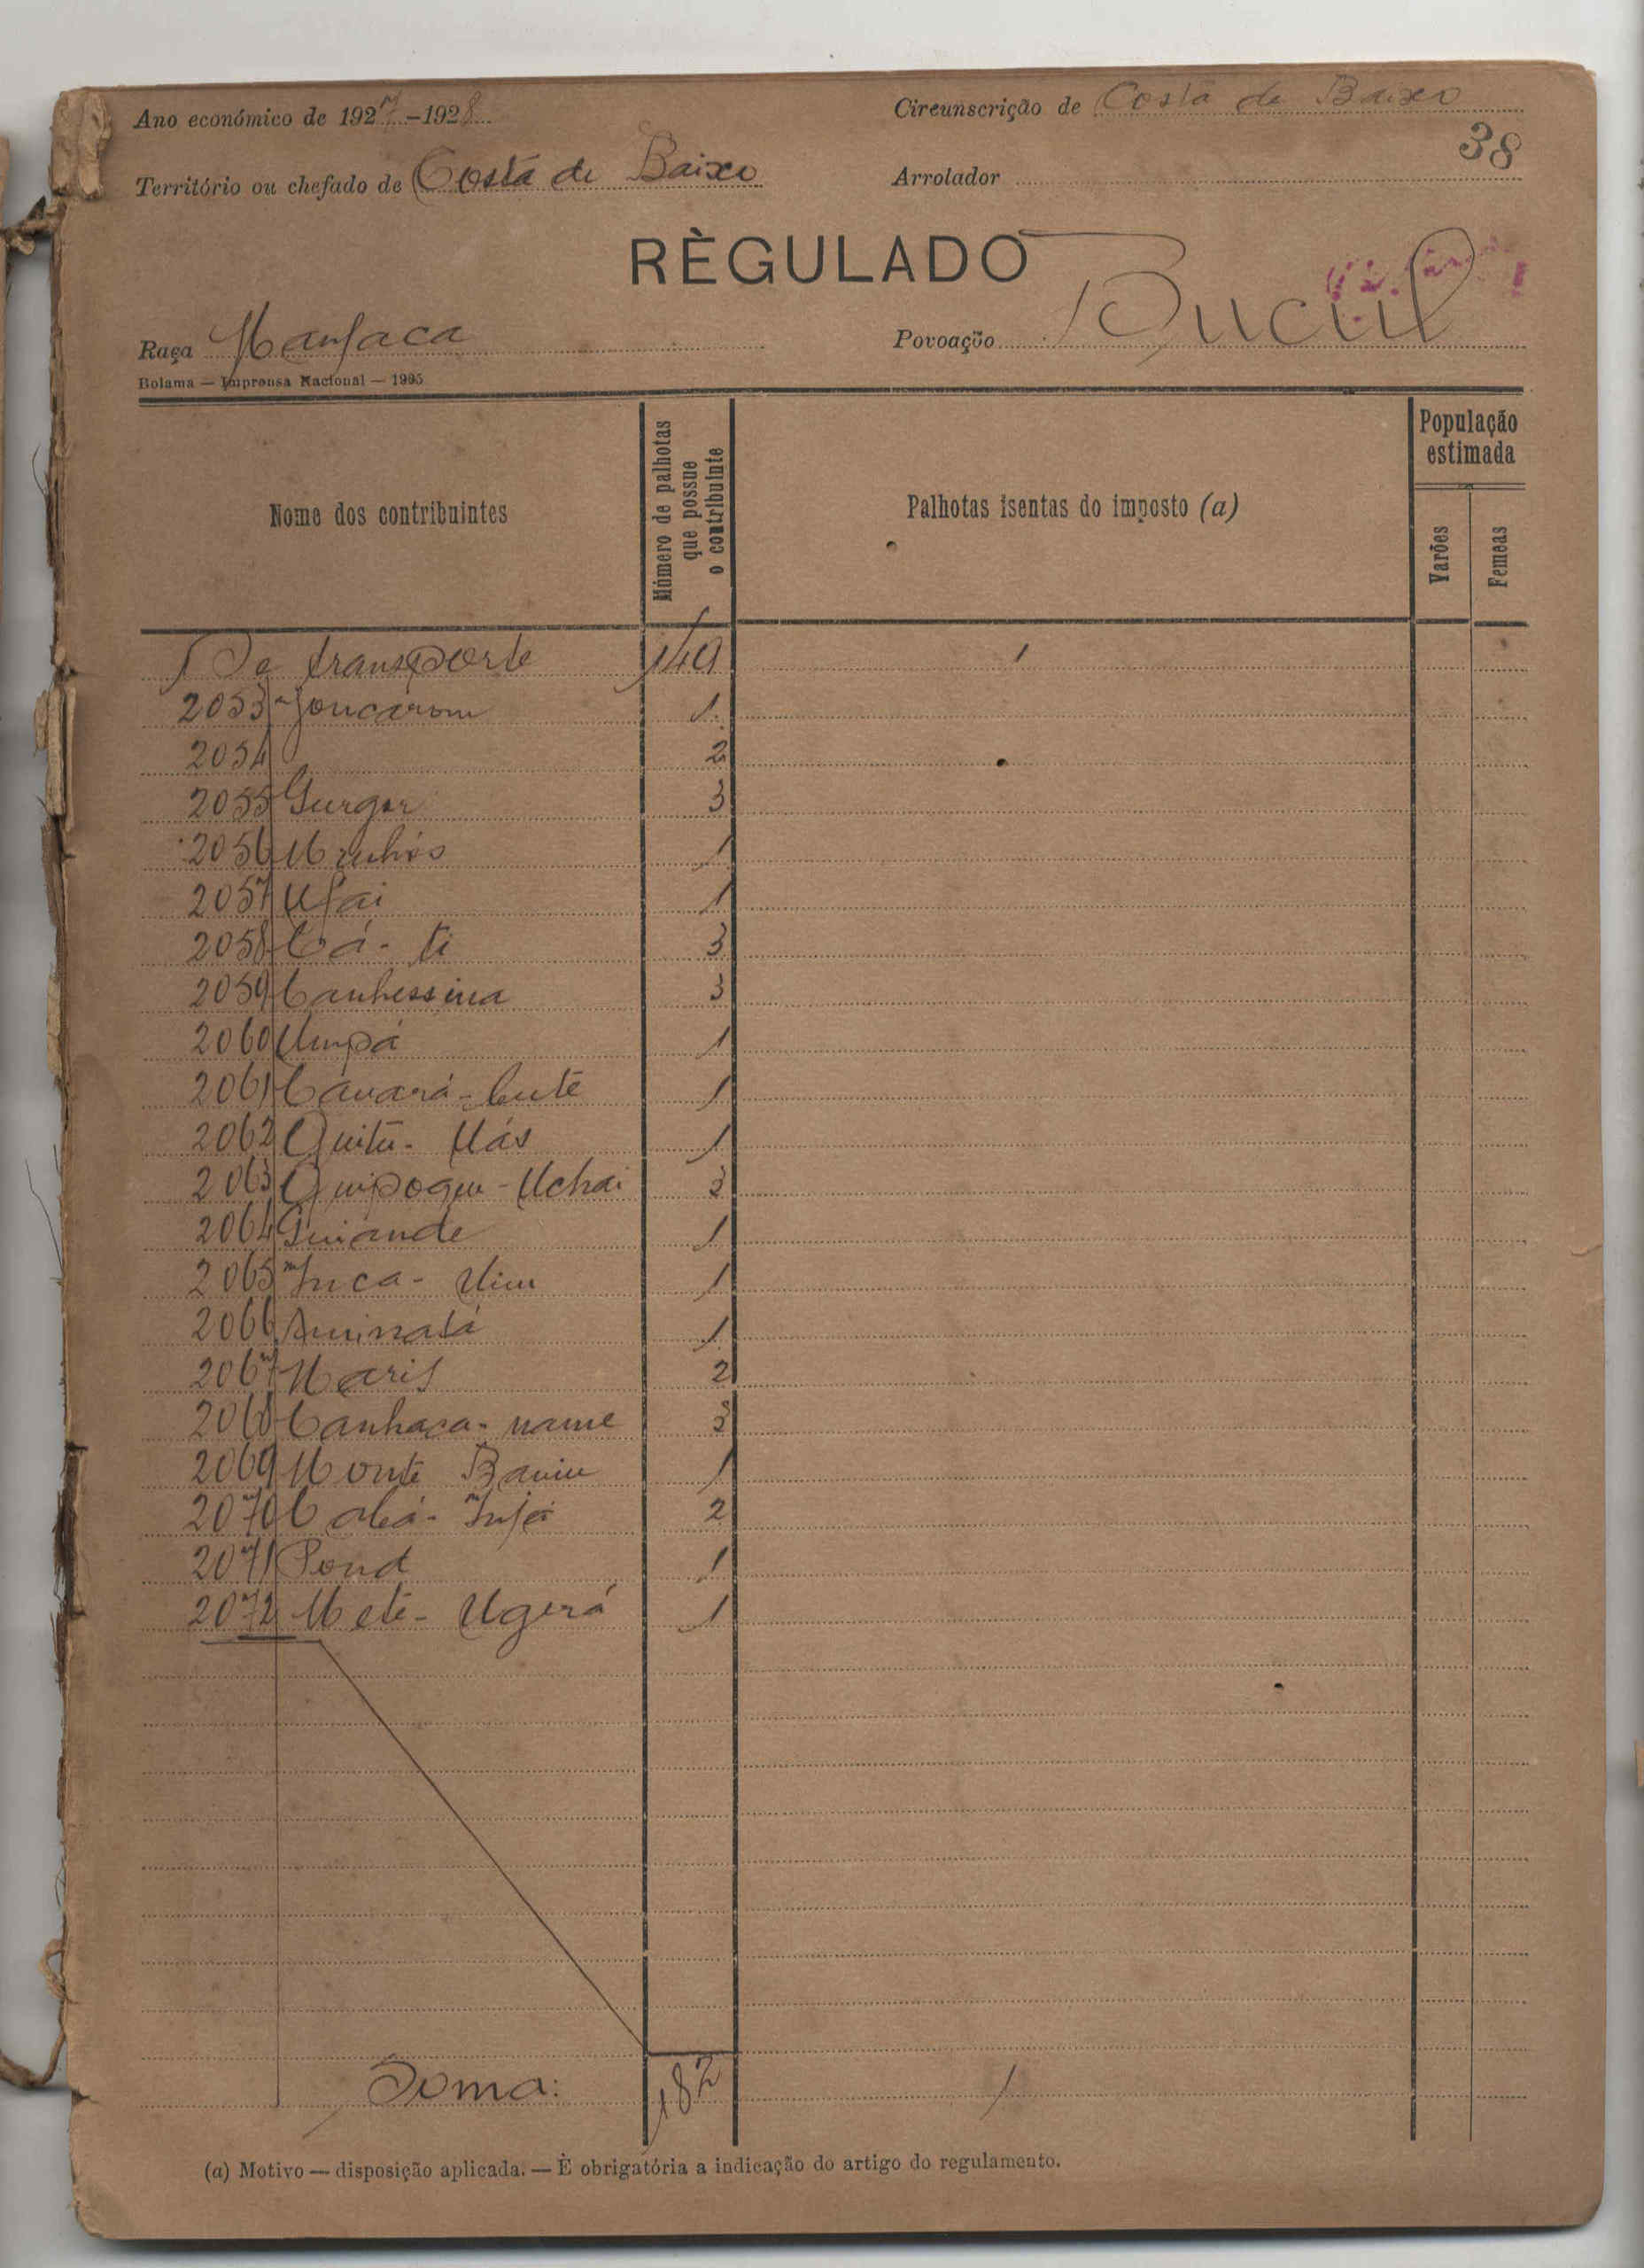 Ano económico de 1927-1928
Circunscrição de Costa de Baixo
38
Território ou chefado de Costa de Baixo
Arrolador
RÈGULADO
Raça Manjaca
Povoação Bucul
Bolama — Imprensa Nacional — 1925
Nome dos contribuintes
Número de palhotas que possue o contribuinte
Palhotas isentas do imposto (a)
População estimada
Varões
Femeas
De transporte 149 1
2053 Joncarom 1
2054 2
2055 Gurgor 3
2056 1
2057 Ufai 1
2058 Cá-ti 3
2059 Canhessina 3
2060 Umpá 1
2061 Cavará-Cuté 1
2062 Quitu-Uás 1
2063 Quipoqui-Uchai 3
2064 Guiande 1
2065 Juca-Uim 1
2066 1
2067 Naris 2
2068 Canhaca-name 3
2069 Monte 1
2070 2
2071 Pond 1
2072 Meté-Ugerá 1
Soma: 182 1
(a) Motivo — disposição aplicada. — È obrigatória a indicação do artigo do regulamento.